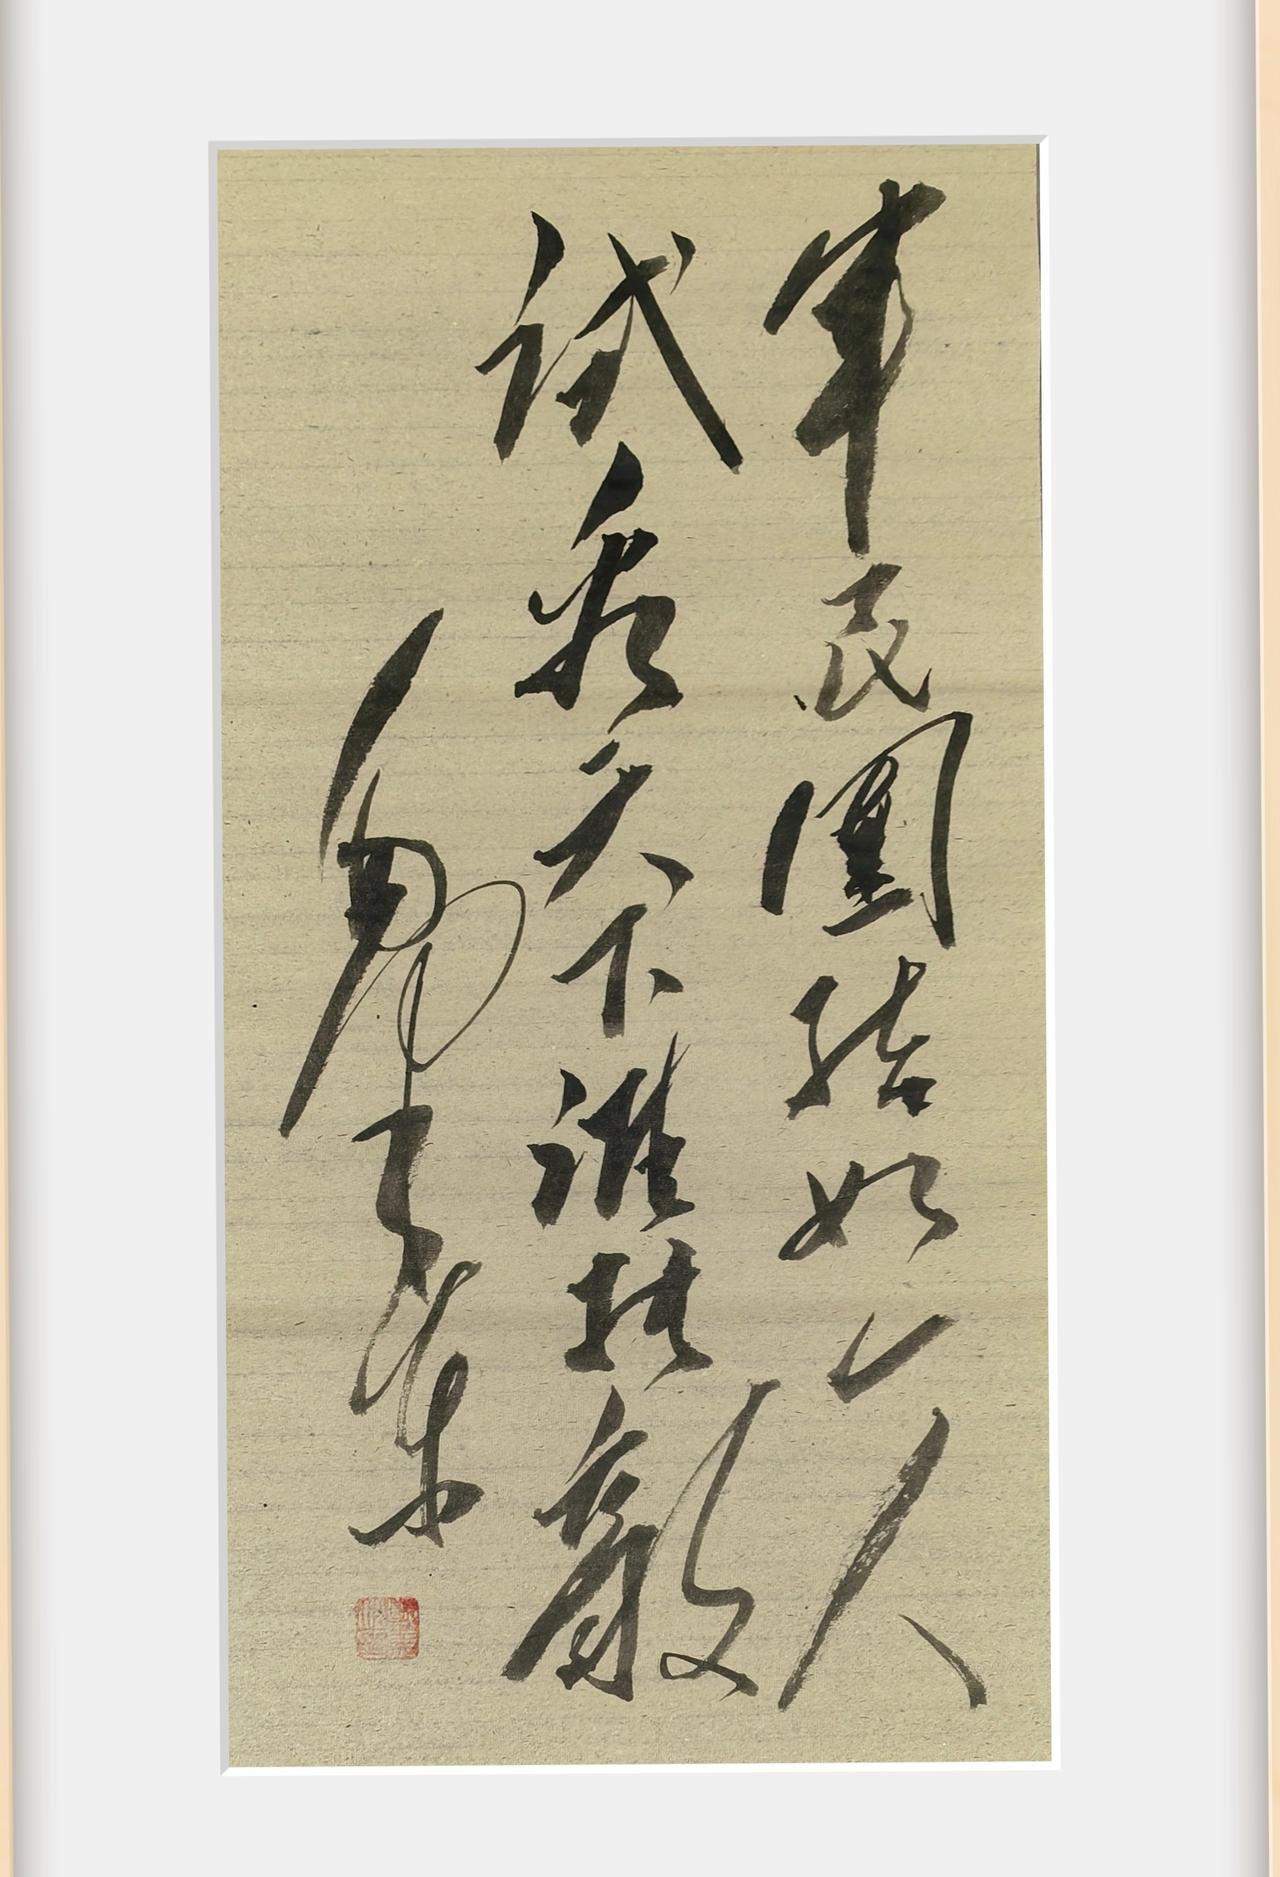 军民團结如一人
試看天下谁能敵
毛泽东